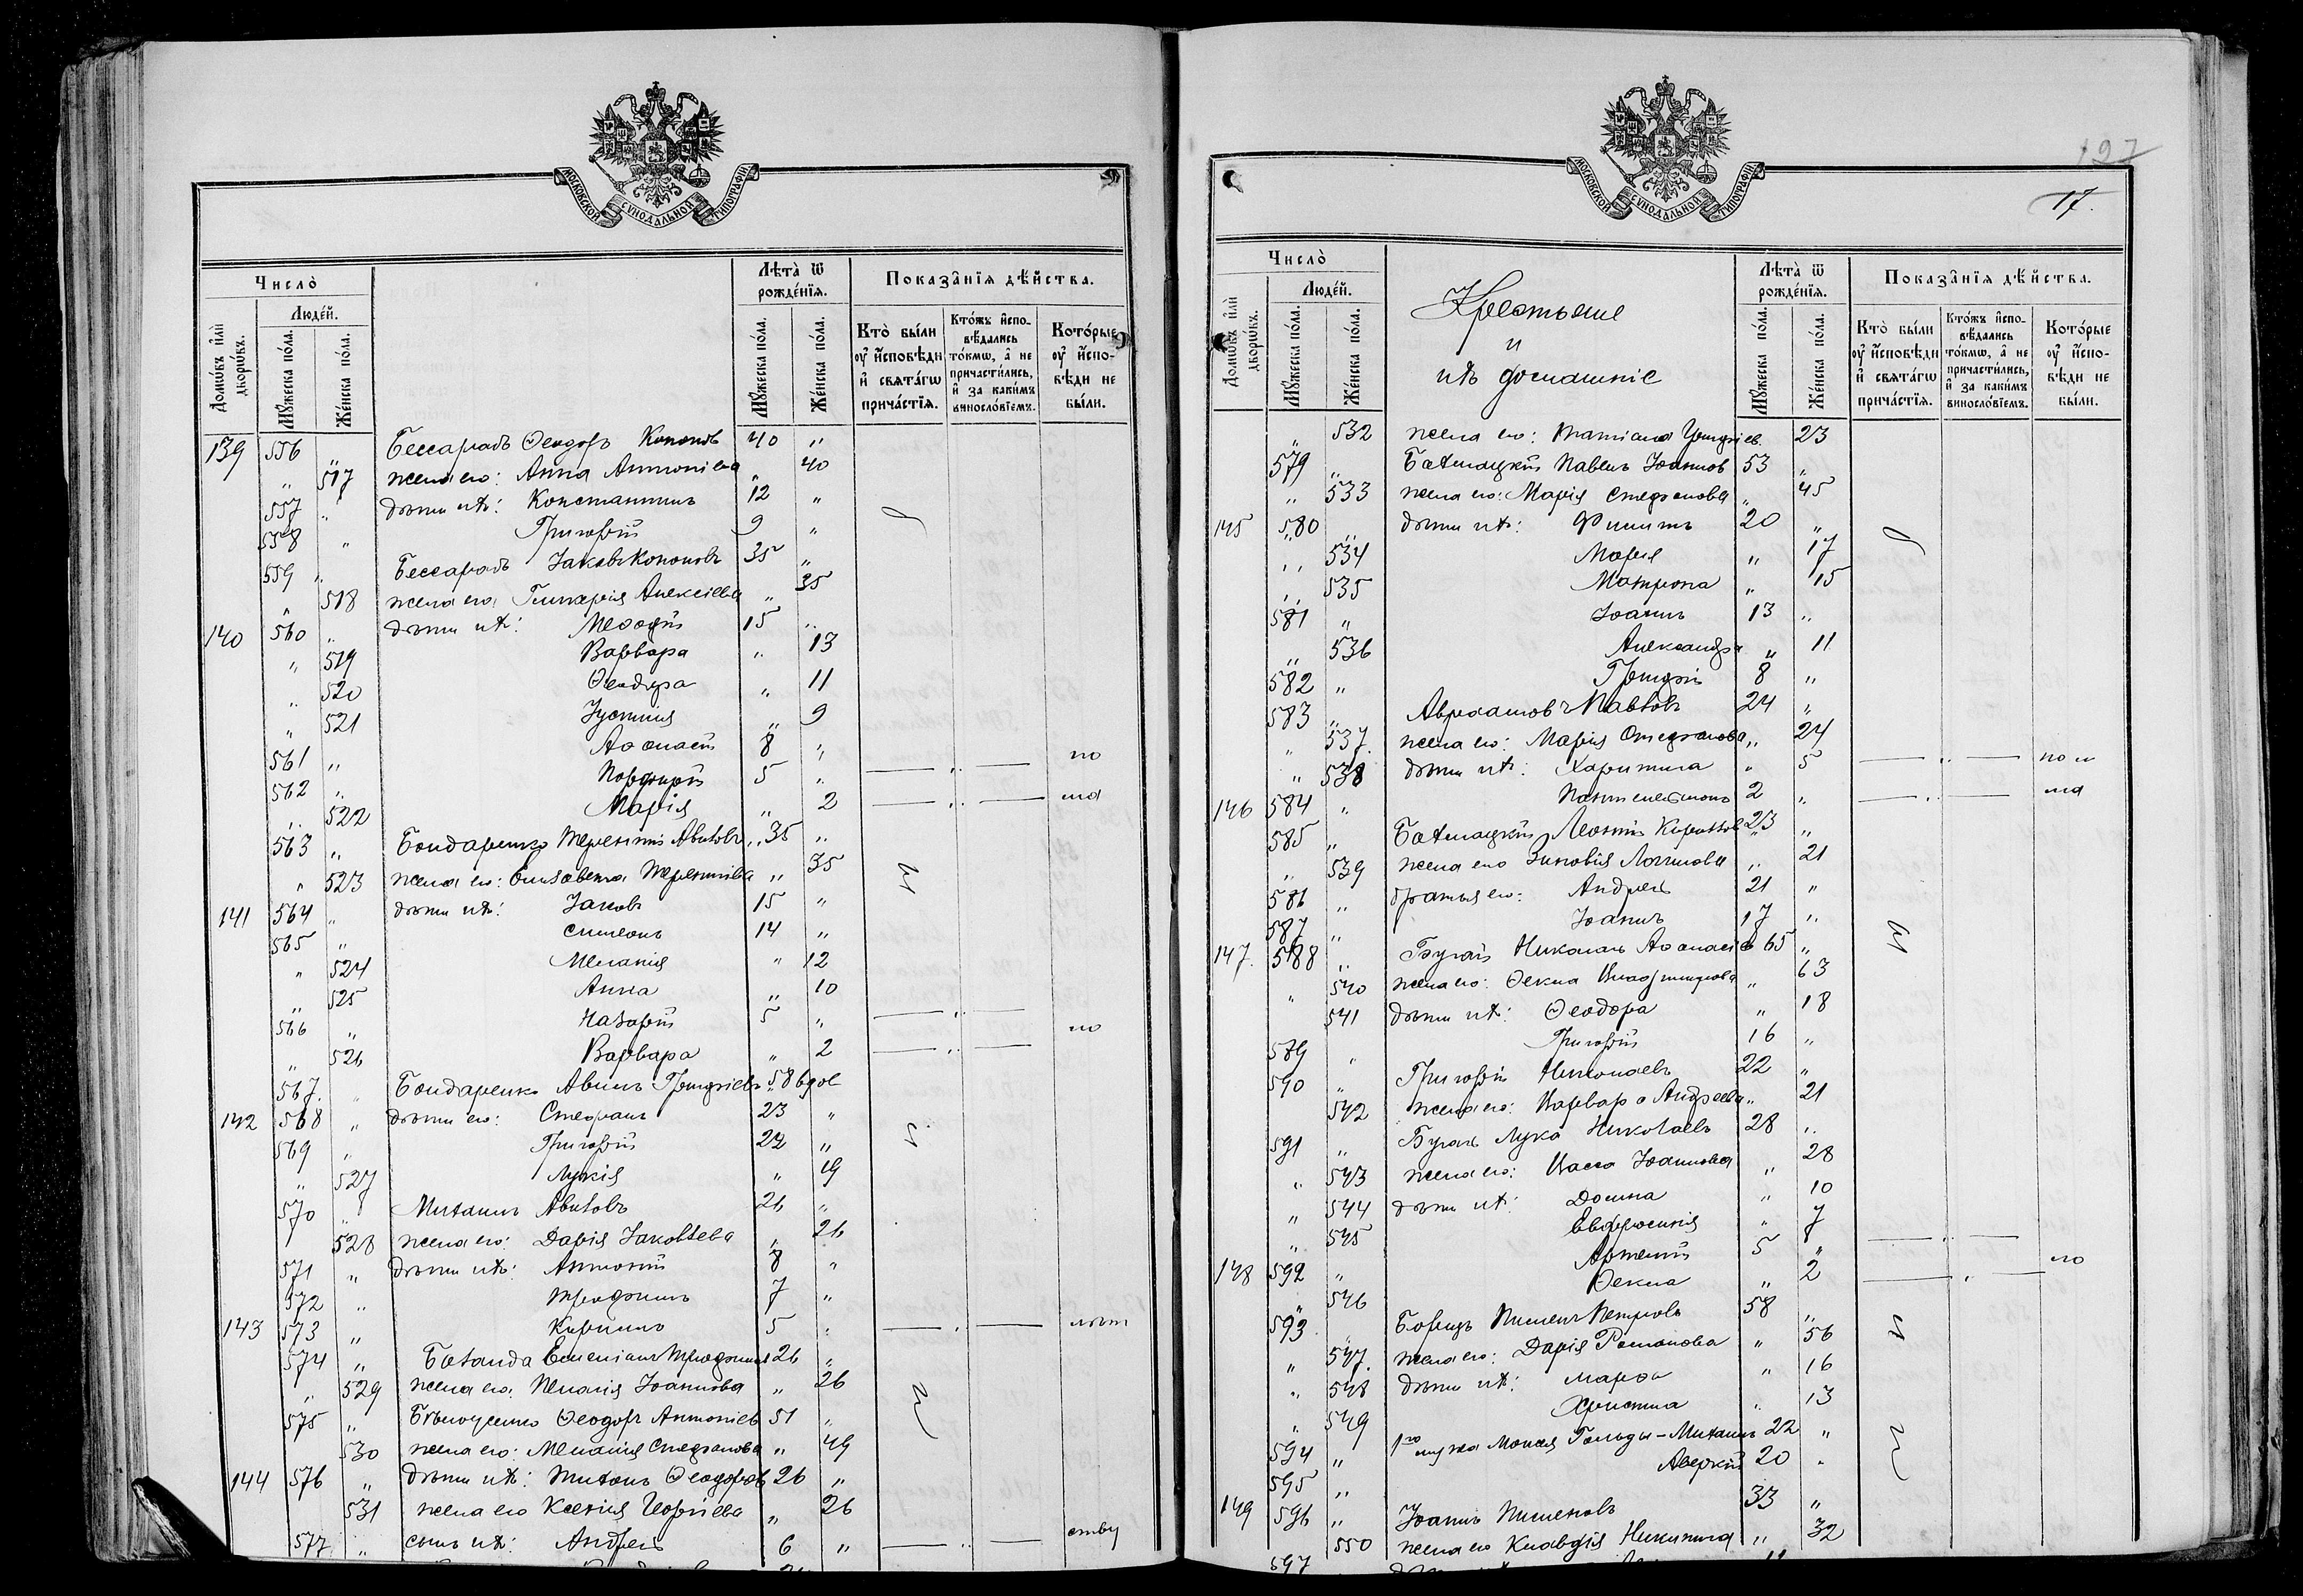 МОСКОВСКОЙ СѴНОДАЛЬНОЙ ТИПОГРАФІИ
Число̀
Люде́й.
Домѡ́въ и҆лѝ дворѡ́въ.
Мꙋ́жеска по́ла.
Же́нска по́ла.
Лѣта̀ ѿ рожде́нїѧ.
Мꙋ́жеска по́ла.
Же́нска по́ла.
Показа̑нїѧ дѣ́йства.
Кто̀ бы́ли ᲂу҆ и҆спове́ди и҆ свѧта́гѡ прича́стїѧ.
Кто́жъ и҆спо-вѣ́дались то́кмѡ, а҆ не причасти́лись, и҆ за каки́мъ винослові́емъ.
Кото́рые ᲂу҆ и҆спо-вѣди не бы́ли.
139 556 „ Бессарабъ Ѳеодоръ Кононовъ 40 „
„ 517 жена его: Анна Антоніева „ 40
557 „ дѣти ихъ: Константинъ 12 „
558 „ Григорій 9 „
559 „ Бессарабъ Іаковъ Кононовъ 35 „
„ 518 жена его Гликерія Алексіева „ 35
140 560 „ дѣти ихъ: Меѳодій 15 „
„ 519 Варвара „ 13
„ 520 Ѳеодора „ 11
„ 521 Іустинія „ 9
561 „ Аѳанасій 8 „
562 „ Порфирій 5 „ — „ — по
„ 522 Марія „ 2 — „ — ма
563 „ Бондаренко Терентій Авиловъ „ 35 „
„ 523 жена его: Елисавета Терентіева „ 35
141 564 „ дѣти ихъ: Іаковъ 15 „
565 „ Симеонъ 14 „
„ 524 Меланія „ 12
„ 525 Анна „ 10
566 „ Назарій 5 „ — „ —
„ 526 Варвара „ 2 — „ — по
567. „ Бондаренко Авилъ Григоріевъ 58 вдов
142 568 „ дѣти его: Стефанъ 23 „
569 „ Григорій 22 „
„ 527 Лукія „ 19
570 „ Михаилъ Авиловъ 26 „
528 жена его: Дарія Іаковлева „ 26
571 „ дѣти ихъ: Антоній 8 „
572 „ Трофимъ 7 „
143 573 „ Кириллъ 5 „ — „ —
574 „ Баланда Емеліанъ Трофимовъ 26 „
„ 529 жена его: Пелагія Іоаннова „ 26
575 „ Бѣлоусенко Ѳеодоръ Антоніев 51 „
530 жена его: Меланія Стефанова „ 49
144 576 „ дѣти ихъ: Ѳеодоров 26 „
531 жена его Ксенія Георгіева „ 26
577 „ сынъ ихъ: Андрей 6 „ — „ — ству
127
17.
МОСКОВСКОЙ СѴНОДАЛЬНОЙ ТИПОГРАФІИ
Число̀
Люде́й.
Домѡ́въ и҆лѝ дворѡ́въ.
Мꙋ́жеска по́ла.
Же́нска по́ла.
Крестьяне
и
ихъ домашніе
Лѣта̀ ѿ рожде́нїѧ.
Мꙋ́жеска по́ла.
Же́нска по́ла.
Показа̑нїѧ дѣ́йства.
Кто̀ бы́ли ᲂу҆ и҆спове́ди и҆ свѧта́гѡ прича́стїѧ.
Кто́жъ и҆спо-вѣ́дались то́кмѡ, а҆ не причасти́лись, и҆ за каки́мъ винослові́емъ.
Кото́рые ᲂу҆ и҆спо-вѣди не бы́ли.
„ 532 жена его: Татіана 23
579 „ Павелъ Іоаннов 53 „
„ 533 жена его: Марія Стефанова „ 45
145 580 „ дѣти ихъ: Филиппъ 20 „
„ 534 Марія „ 17
„ 535 Матрона „ 15
581 „ Іоаннъ 13 „
„ 536 Александра „ 11
582 „ Григорій 8 „
583 „ Авраамъ Павловъ 24 „
„ 537. жена его: Марія Стефанова „ 24
„ 538 дѣти ихъ: Харитина „ 5 — „ — по и
146 584 „ Пантелеимонъ 2 „ — „ — ма
585 „ Леонтій Кириллов 23 „
„ 539 жена его Зиновія Логинова „ 21
586 „ братья его: Андрей 21 „
587 „ Іоаннъ 17 „
147. 588 „ Бугай Николай Аѳанасіев 65 „
„ 540 жена его: Ѳекла Владимирова „ 63
541 дѣти ихъ: Ѳеодора „ 18
589 „ Григорій 16 „
590 „ Григорій Николаевъ 22 „
542 жена его: Варвара Андреева „ 21
591 „ Бугай Лука Николаевъ 28 „
„ 543 жена его: Васса Іоаннова „ 28
„ 544 дѣти ихъ: Домна „ 10
„ 545 Евфросинія „ 7
148 592 „ Артемій 5 „ — „ —
„ 546 Ѳекла „ 2 — „ — по
593 Борецъ Пименъ Петровъ 58 „
„ 547. жена его: Дарія Романова „ 56
„ 548 дѣти ихъ: Марѳа „ 16
„ 549 Христина „ 13
594 „ 1го мужа Гольды - Михаилъ 22 „
595 „ Аверкій 20 „
149 596 „ Іоаннъ Пименовъ 33 „
550 жена его Клавдія Никитина „ 32
597